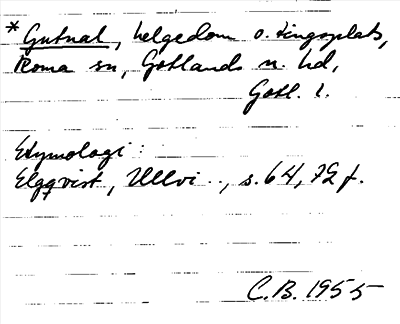 * Gutnal, helgedom o. tingsplats,
Roma sn, Gotlands n. hd,
Gotl. l.
Etymologi:
Elgqvist, Ullvi.., s. 64, 72 f.
C.B. 1955